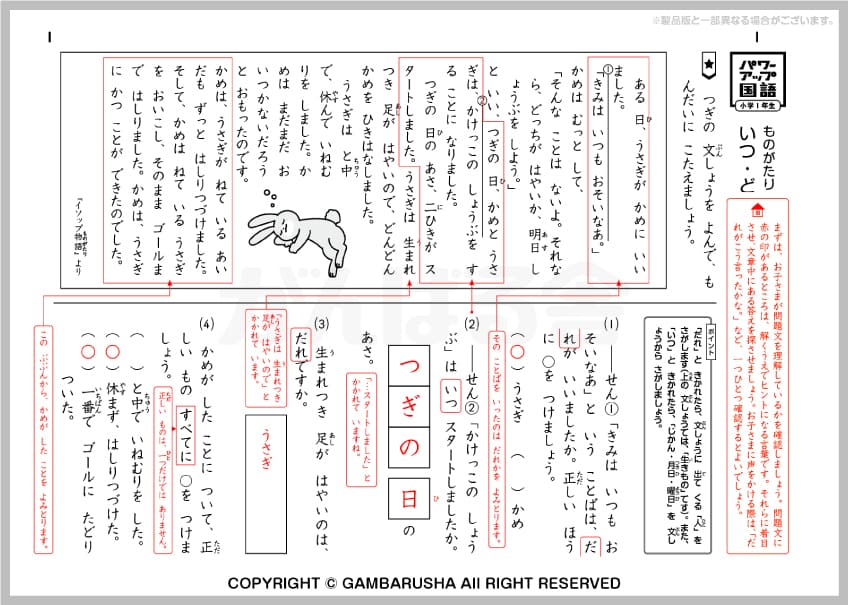 ※製品版と一部異なる場合がございます。
1
1
パワーアップ国語
小学1年生
ものがたり
いつ・ど
まずは、お子さまが問題文を理解しているかを確認しましょう。問題文に
赤の印があるところは、解くうえでヒントになる言葉です。それらに着目
させ、文章中にある答えを探させましょう。お子さまに声をかける際は、「だ
れがこう言ったかな。」など、一つひとつ確認するとよいでしょう。
★
つぎの 文しょうを よんで、も
んだいに こたえましょう。
ある 日、うさぎが かめに いい
ました。
①「きみは いつも おそいなあ。」
かめは むっと して、
「そんな ことは ないよ。それな
ら、どっちが はやいか、明日 し
ょうぶを しよう。」
と いい、つぎの 日、かめと うさ
ぎは、②かけっこの しょうぶを す
る ことに なりました。
つぎの 日の あさ、二ひきが ス
タートしました。うさぎは 生まれ
つき 足が はやいので、どんどん
かめを ひきはなしました。
うさぎは と中
で、休んで いねむ
りを しました。か
めは まだまだ お
いつかないだろう
と おもったのです。
かめは、うさぎが ねて いる あい
だも ずっと はしりつづけました。
そして、かめは ねて いる うさぎ
を おいこし、そのまま ゴールま
で はしりました。かめは、うさぎ
に かつ ことが できたのでした。
「イソップ物語」より
ポイント
「だれ」と きかれたら、文しょうに 出て くる 「人」を
さがします(上の 文しょうでは、「生きもの」です)。また、
「いつ」と きかれたら、「じかん・月日・曜日」を 文し
ょうから さがしましょう。
(1) ――せん①「きみは いつも お
そいなあ」と いう ことばは、だ
れが いいましたか。正しい ほう
に ○を つけましょう。
(○)うさぎ ( )かめ
その ことばを いったのは だれかを よみとります。
(2) ――せん②「かけっこの しょう
ぶ」は いつ スタートしましたか。
つぎの日の
あさ。
「…スタートしました」と
かかれて いますね。
(3) 生まれつき 足が はやいのは、
だれですか。
うさぎ
「うさぎは 生まれつき
足が はやいので」と
かかれて います。
(4) かめが した ことに ついて、正
しい もの すべてに ○を つけま
しょう。
正しい ものは、一つだけでは ありません。
( )と中で いねむりを した。
(○)休まず、はしりつづけた。
(○)一番で ゴールに たどり
ついた。
この ぶぶんから、かめが した ことを よみとります。
がんばる舎
COPYRIGHT © GAMBARUSHA All RIGHT RESERVED